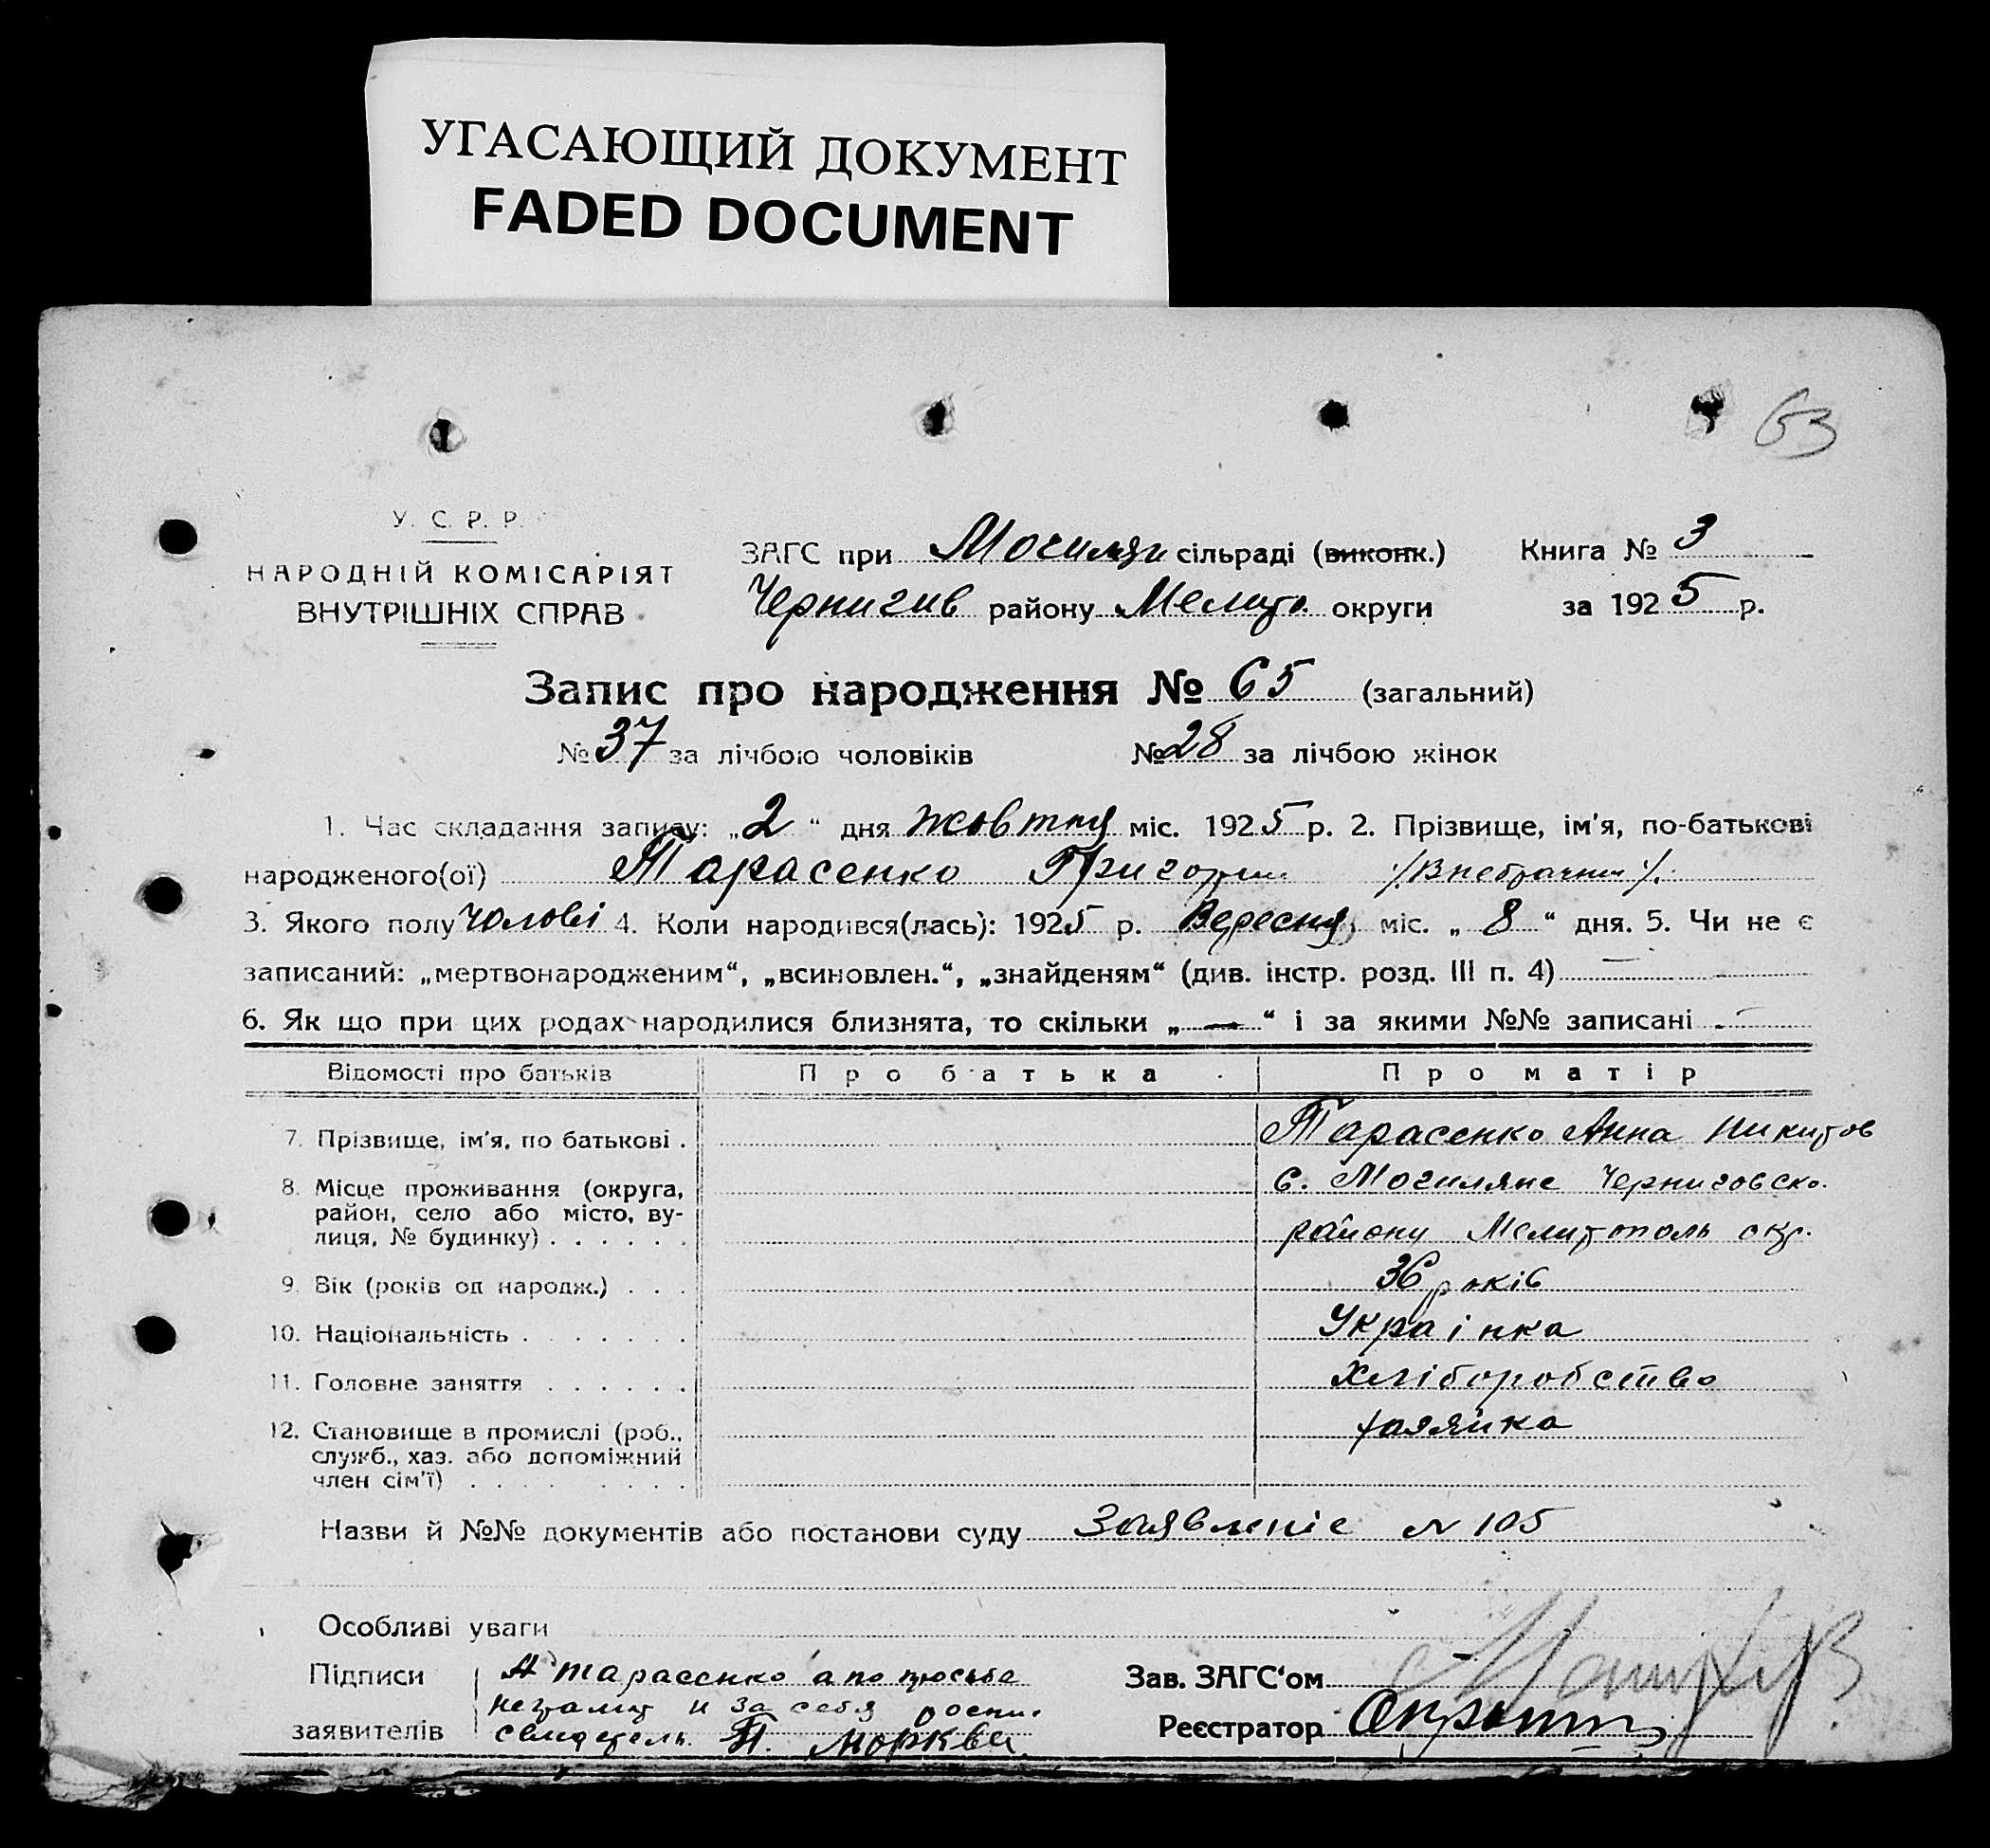 УГАСАЮЩИЙ ДОКУМЕНТ
FADED DOCUMENT
63
У. С. Р. Р.
НАРОДНІЙ КОМІСАРІЯТ
ВНУТРІШНІХ СПРАВ
ЗАГС при Могилян сільраді (виконк.)
Чернигив району Мелито. округи
Книга № 3
за 1925 р.
Запис про народження № 65 (загальний)
№ 37 за лічбою чоловіків № 28 за лічбою жінок
1. Час складання запису: „2“ дня жовтня міс. 1925 р. 2. Прізвище, ім'я, по-батькові
народженого(ої) Тарасенко Григорий
3. Якого полу чолові 4. Коли народився(лась): 1925 р. Вересня міс. „8“ дня. 5. Чи не є
записаний: „мертвонародженим“, „всиновлен.“, „знайденям“ (див. інстр. розд. III п. 4) —
6. Як що при цих родах народилися близнята, то скільки „—“ і за якими №№ записані —
Відомості про батьків Про батька Про матір
7. Прізвище, ім'я, по батькові . Тарасенко Анна Никитов
8. Місце проживання (округа, район, село або місто, вулиця, № будинку) . . . . . . с. Могиляне Черниговско.
району Мелитополь окр.
9. Вік (років од народж.) . . . 36 років
10. Національність . . . . . . . Украінка
11. Головне заняття . . . . . . Хліборобство
12. Становище в промислі (роб., служб., хаз. або допоміжний член сім'ї) . . . . . . . хазяйка
Назви й №№ документів або постанови суду Заявленіе № 105
Особливі уваги
Підписи
заявителів
А Тарасенко а по просьбе
неграмот и за себя роспис
свидетель П. Морква
Зав. ЗАГС‘ом
Реєстратор